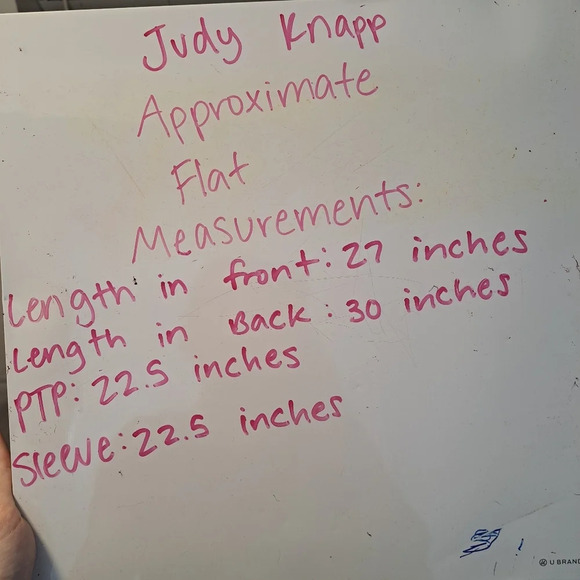 Judy Knapp
Approximate
Flat
Measurements:
Length in front: 27 inches
Length in Back: 30 inches
PTP: 22.5 inches
Sleeve: 22.5 inches
U BRAND